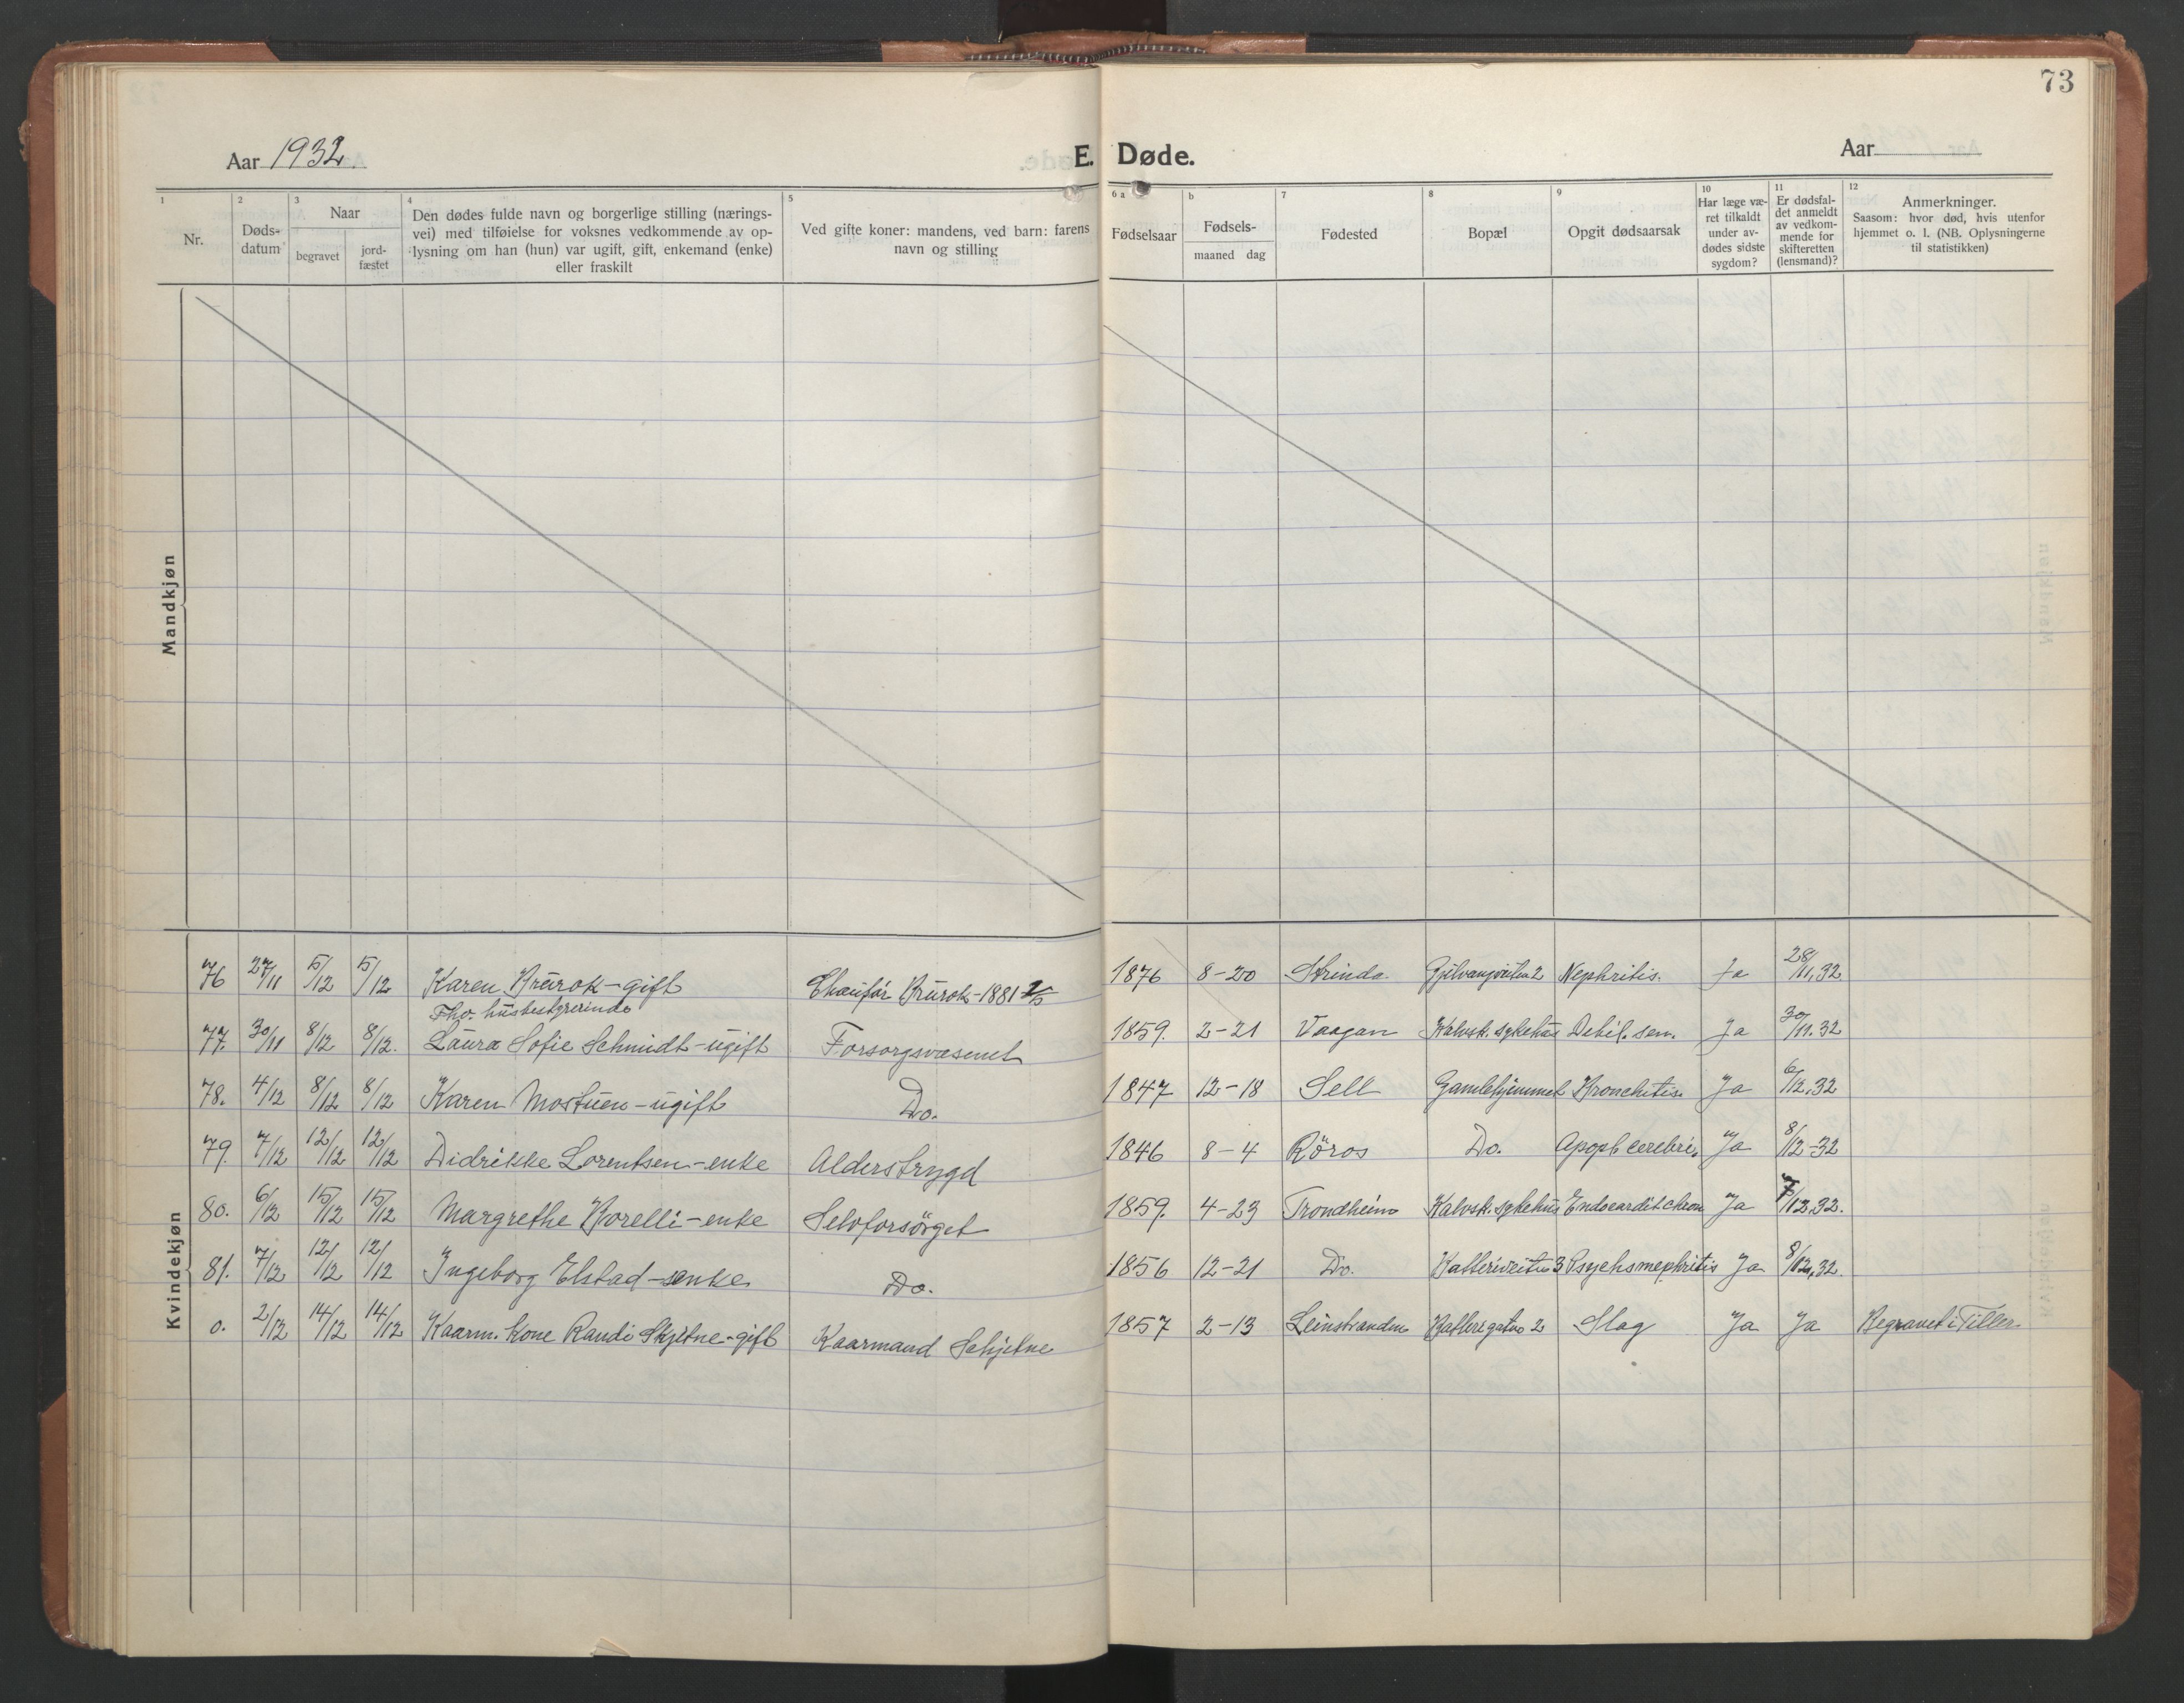 73
Aar 1932. E. Døde. Aar
1 2 3 4 5 6 a b 7 8 9 10 11 12
Nr.
Døds-
datum
Naar
begravet
jord-
fæstet
Den dødes fulde navn og borgerlige stilling (nærings-
vei) med tilføielse for voksnes vedkommende av op-
lysning om han (hun) var ugift, gift, enkemand (enke)
eller fraskilt
Ved gifte koner: mandens, ved barn: farens
navn og stilling
Fødselsaar
Fødsels-
maaned dag
Fødested
Bopæl
Opgit dødsaarsak
Har læge væ-
ret tilkaldt
under av-
dødes sidste
sygdom?
Er dødsfal-
det anmeldt
av vedkom-
mende for
skifteretten
(lensmand)?
Anmerkninger.
Saasom: hvor død, hvis utenfor
hjemmet o. l. (NB. Oplysningerne
til statistikken)
Mandkjøn
Kvindekjøn
76 27/11 5/12 5/12 Karen Brurok-gift Chaufør Brurok-1881 2/5 1876 8-20 Strinda Nephritis. Ja 28/11.32
Fho. husbestyrerinde
77. 30/11 8/12 8/12. Laura Sofie Schmidt-ugift Forsorgsvæsenet 1859. 2-21 Vaagan Kalvsk. sykehus Debil. sen. Ja 30/11.32
78. 4/12 8/12 8/12 Karen Mostuen-ugift Do. 1847 12-18 Sell Gamlehjemmet Bronchitis. Ja 6/12.32
79. 7/12 12/12 12/12 Didrikke Lorentsen-enke Alderstrygd 1846 8-4 Röros Do. Apopl. cerebri. Ja 8/12-32
80. 6/12 15/12 15/12 Margrethe Borelli-enke Selvforsörget 1859. 4-23 Trondheim Kalvsk. sykehus Endocardit chron Ja 7/12.32.
81. 7/12 12/12 12/12 Ingeborg Elstad-enke Do. 1856 12-21 Do. 3 Ja 8/12.32.
0. 2/12 14/12 14/12 Kaarm. kone Randi Skjetne-gift Kaarmand Schjetne 1857 2-13 Leinstranden 2 Slag Ja Ja Begravet i Tiller